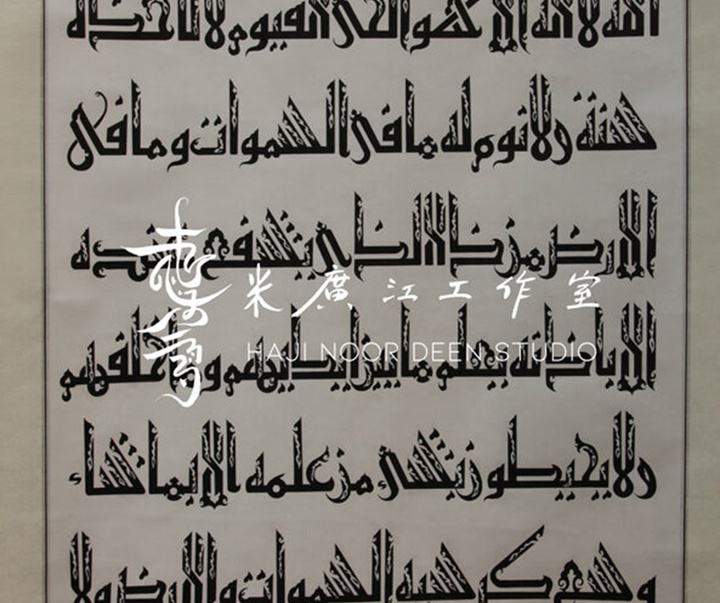 الله لا اله الا هو الحي القيوم لا تاخذه
سنة ولا نوم له ما في السموات وما في
الارض من ذا الذي يشفع عنده
米廣江工作室
الا باذنه يعلم ما بين ايديهم وما خلفهم
HAJI NOOR DEEN STUDIO
ولا يحيطون بشيء من علمه الا بما شاء
وسع كرسيه السموات والارض ولا